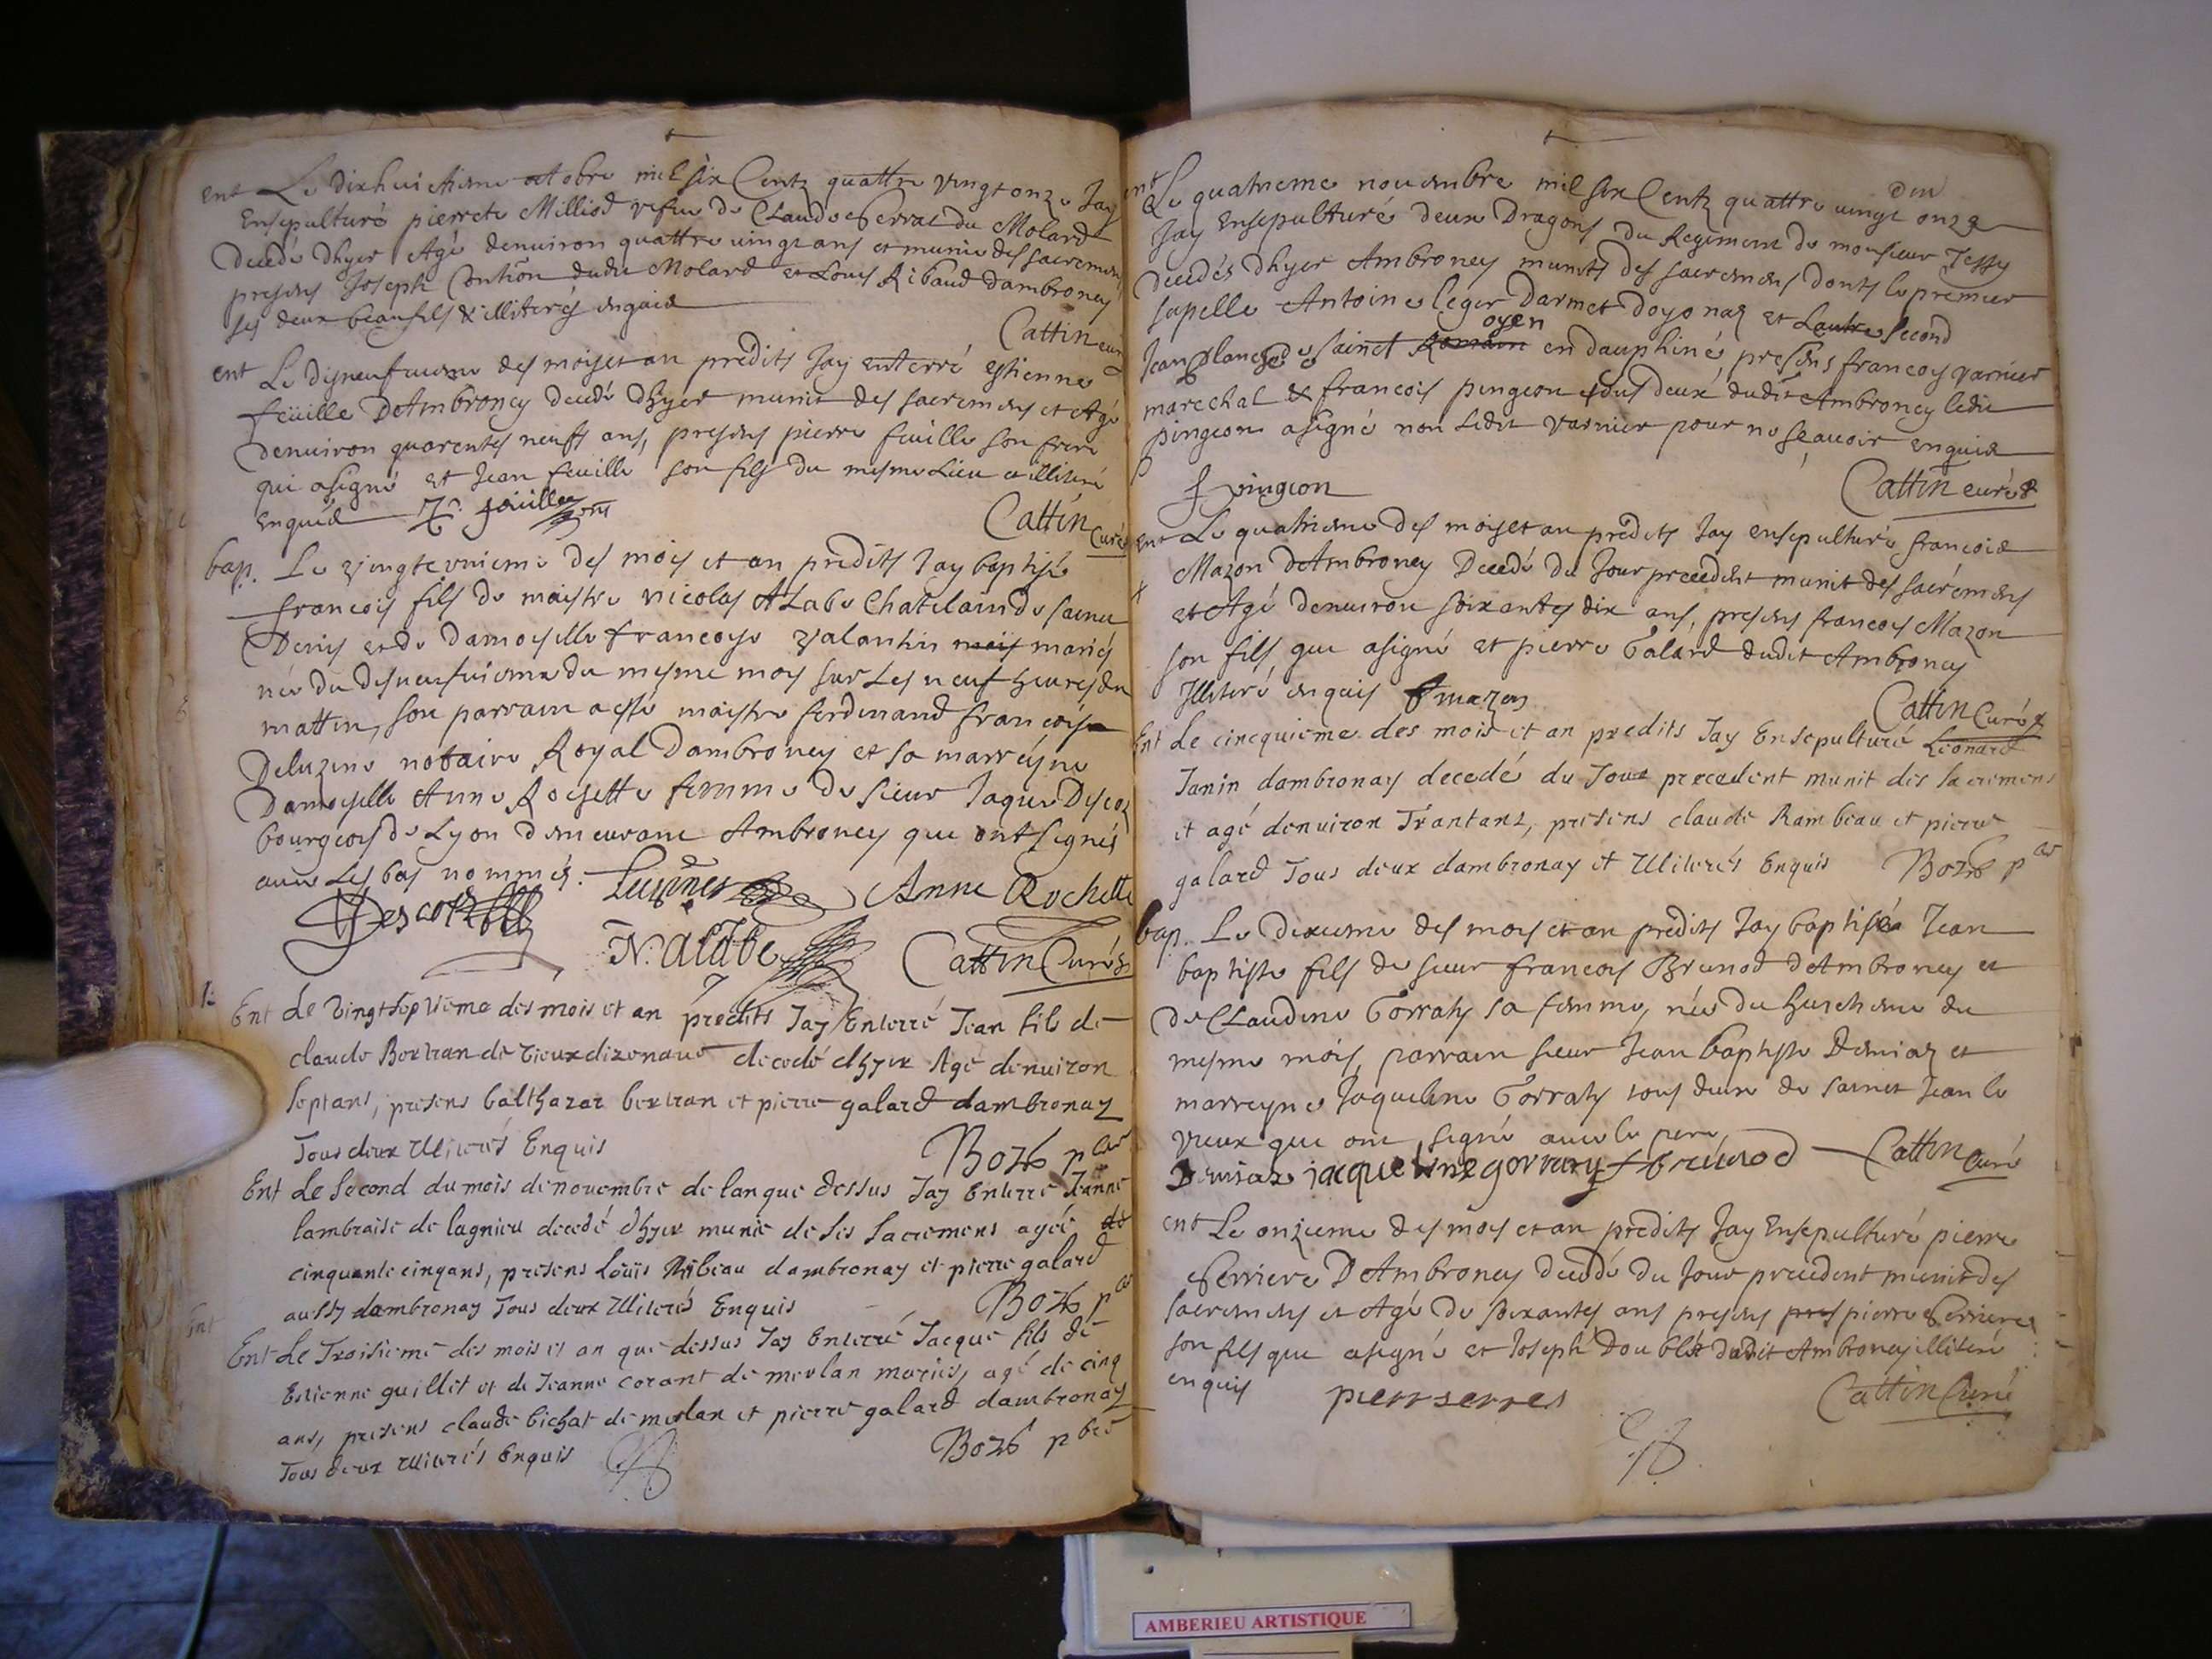 ent Le dixhuictiesme octobre mil six Centz quattre vingt onze Jay
Ensepulturé pierrete Milliod vefue de Claude Perrat du Molard
decedé dhyer Agé denuiron quattre uingt ans et munie des sacremens
presens Joseph dudit Molard et Louis Ribaud dambroney
ses deux beaufils & illiterés enquis
Cattin curé
ent Le disneufuiesme des mois et an predits Jay enterré estienne
feüille DAmbroney decedé dhyer munit des sacremens et Agé
denuiron quarentes neufs ans, presens pierre feuille son frere
qui asigné et Jean feuille son fils du mesme Lieu illiteré
enquis feüille
Cattin Curé
bap. Le vingtevniemé des mois et an predits Jay baptisé
francois fils de maistre nicolas ALabe Chatelain de sainct
Denis et de damoyselle francoyse Valantin mariés
née du disneufuiesme du mesme mois sur Les neuf heures du
mattin, son parrain a esté maistre ferdinand francois
Deluzine notaire Royal dambroney et sa marreyne
Damoyselle Anne Rochette femme de sieur Jaques Descoz
bourgeois de Lyon demeurant Ambroney que ont signés
auec Les bas nommés.
Anne Rochette
Descoz
N. alabe Cattin Curé
Ent Le vingtseptieme des mois et an predits Jay Enterré Jean fils de
claude Bertran de vieuxdizenaue decedé dhyer Agé denuiron
septans, presens balthazar bertran et pierre galard dambronay
Tous deux illiterés Enquis
Bozo pbre
Ent Le second du mois de nouembre de lan que dessus Jay Enterré Jeanne
lambraise de lagnieu decedé dhyer munie de ses sacremens agée de
cinquante cinqans, presens Loüis Ribeau dambronay et pierre galard
aussy dambronay Tous deux illiterés Enquis
Bozo pbre
Ent Le Troisieme des mois et an que dessus Jay Enterré Jacque fils de
Estienne guillet et de Jeanne corant de merlan mariés, agé de cinq
ans, presens claude bichat de merlan et pierre galard dambronay
Tous deux illiterés Enquis
Bozo pbre
ent Le quatrieme nouembre mil six Centz quattre uingt onze
Jay Ensepulturé deux Dragons du Regiment de monsieur Tessy
decedés dhyer Ambroney munits des sacremens donts le premier
sapelle Antoine leger Darmet doyonaz et Lautre second
Jean de sainct Romain oyen en dauphiné, presens francois varnier
marechal & francois pingeon tous deux dudit Ambroney ledit
pingeon asigné non Ledit varnier pour ne scauoir enquis
f pingeon
Cattin curé
ent Le quatrieme des mois et an predits Jay ensepulturé francois
Mazon dAmbroney Decedé du Jour precedent munit des sacremens
et Agé denuiron soixantes dix ans, presens francois Mazon
son fils que asigné et pierre Galard dudit Ambroney
Illiteré enquis f mazon
Cattin Curé
Ent Le cincquieme des mois et an predits Jay Ensepulturé Léonard
Janin dambronay decedé du Jour precedent munit des sacremens
et agé denuiron Trantans, presens claude Rambeau et pierre
galard Tous deux dambronay et illiterés Enquis Bozo pbre
bap. Le dixiesme des mois et an predits Jay baptisé Jean
baptiste fils de sieur francois Brunod dAmbroney et
de Claudine Gorraty sa femme, née du huictiesme du
mesme mois, parrain sieur Jean baptiste Demiaz et
marreyne Jaqueline Gorraty tous deux de sainct Jean le
vieux que ont signé auec le pere
Demiaz jacquelinegorraty f brunod Cattin Curé
ent Le onzieme des mois et an predits Jay Ensepulturé pierre
Serriere DAmbroney decedé du Jour precedent munit des
sacremens et Agé de soixantes ans presens pres pierre Serriere
son fils que asigné et Joseph Doublet dudit Ambroney illiteré
enquis pierrserres
Cattin Curé
AMBERIEU ARTISTIQUE